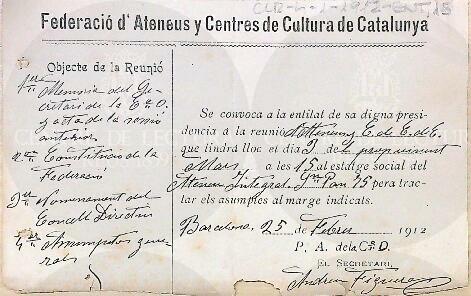 CLR-L-1-1912-ENT.15
Federació d'Ateneus y Centres de Cultura de Catalunya
Objecte de la Reunió
1er Memoria del Se-
cretari de la C. O.
y acta de la reunió
anterior
2on Constitució de la
Federació
3er Nomenament del
Concell Directiu
4rt Assumptos gene-
rals
Se convoca a la entitat de sa digna presi-
dencia a la reunió d'Ateneus y C. de C. de C.
que tindrá lloc el día 3 de l proxim vinent
Mars a les 15 al estatge social del
Ateneu Integral. 15 pera trac-
tar els asumptes al marge indicats.
Barcelona, 25 de Febrer 1912
P. A. de la C. O.
EL SECRETARI,
Andreu Figueras